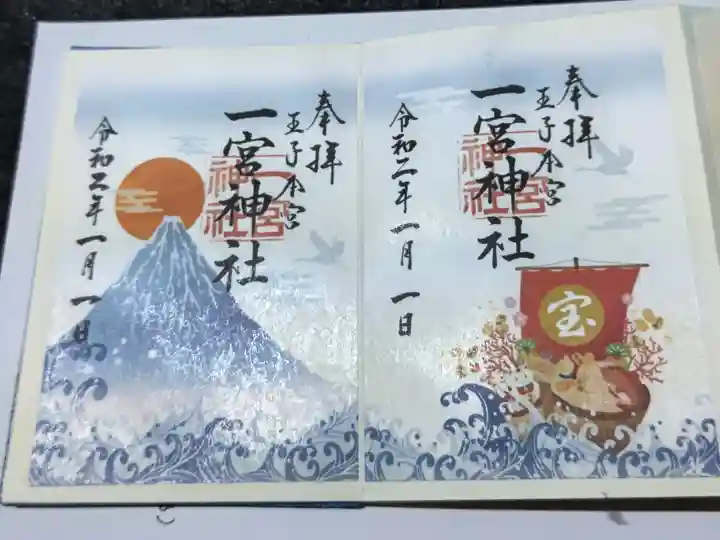 奉拝
王子本宮
一宮神社
令和二年一月一日
奉拝
王子本宮
一宮神社
令和二年一月一日
一宮神社
一宮神社
宝